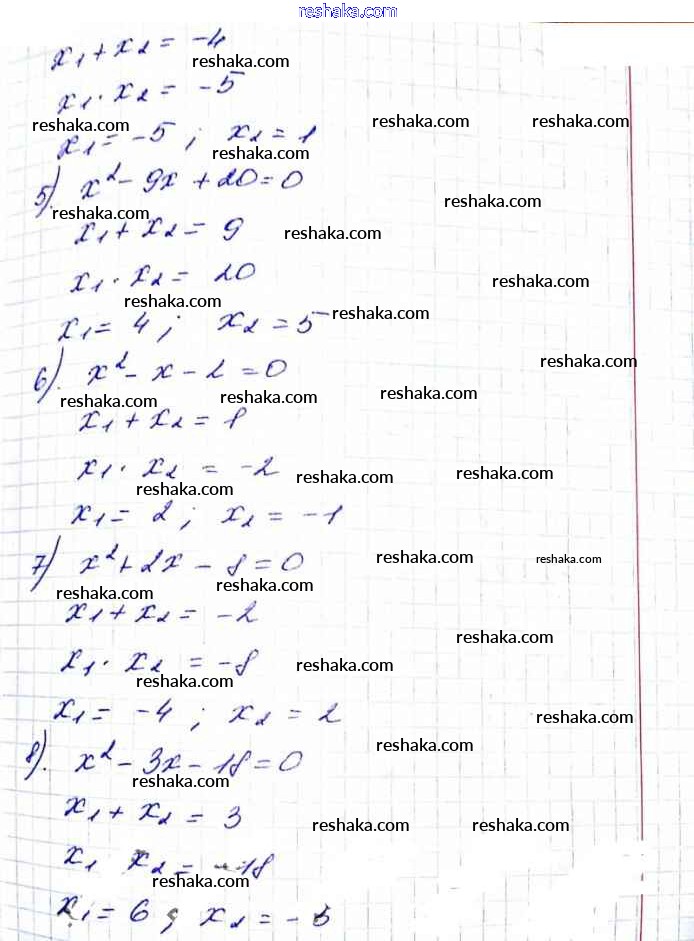 reshaka.com
x₁ + x₂ = -4
reshaka.com
x₁ · x₂ = -5
reshaka.com reshaka.com reshaka.com
x₁ = -5 ; x₂ = 1
reshaka.com
5). x² - 9x + 20 = 0
reshaka.com reshaka.com
x₁ + x₂ = 9
reshaka.com
x₁ · x₂ = 20
reshaka.com
reshaka.com
x₁ = 4 ; x₂ = 5
reshaka.com
reshaka.com
6). x² - x - 2 = 0
reshaka.com reshaka.com reshaka.com
x₁ + x₂ = 1
x₁ · x₂ = -2
reshaka.com reshaka.com
reshaka.com
x₁ = 2 ; x₂ = -1
7) x² + 2x - 8 = 0
reshaka.com reshaka.com
reshaka.com reshaka.com
x₁ + x₂ = -2
reshaka.com
x₁ · x₂ = -8
reshaka.com
reshaka.com
x₁ = -4 ; x₂ = 2
reshaka.com
reshaka.com
8). x² - 3x - 18 = 0
reshaka.com
x₁ + x₂ = 3
reshaka.com reshaka.com
x₁ x₂ = -18
reshaka.com
x₁ = 6 ; x₂ = -3